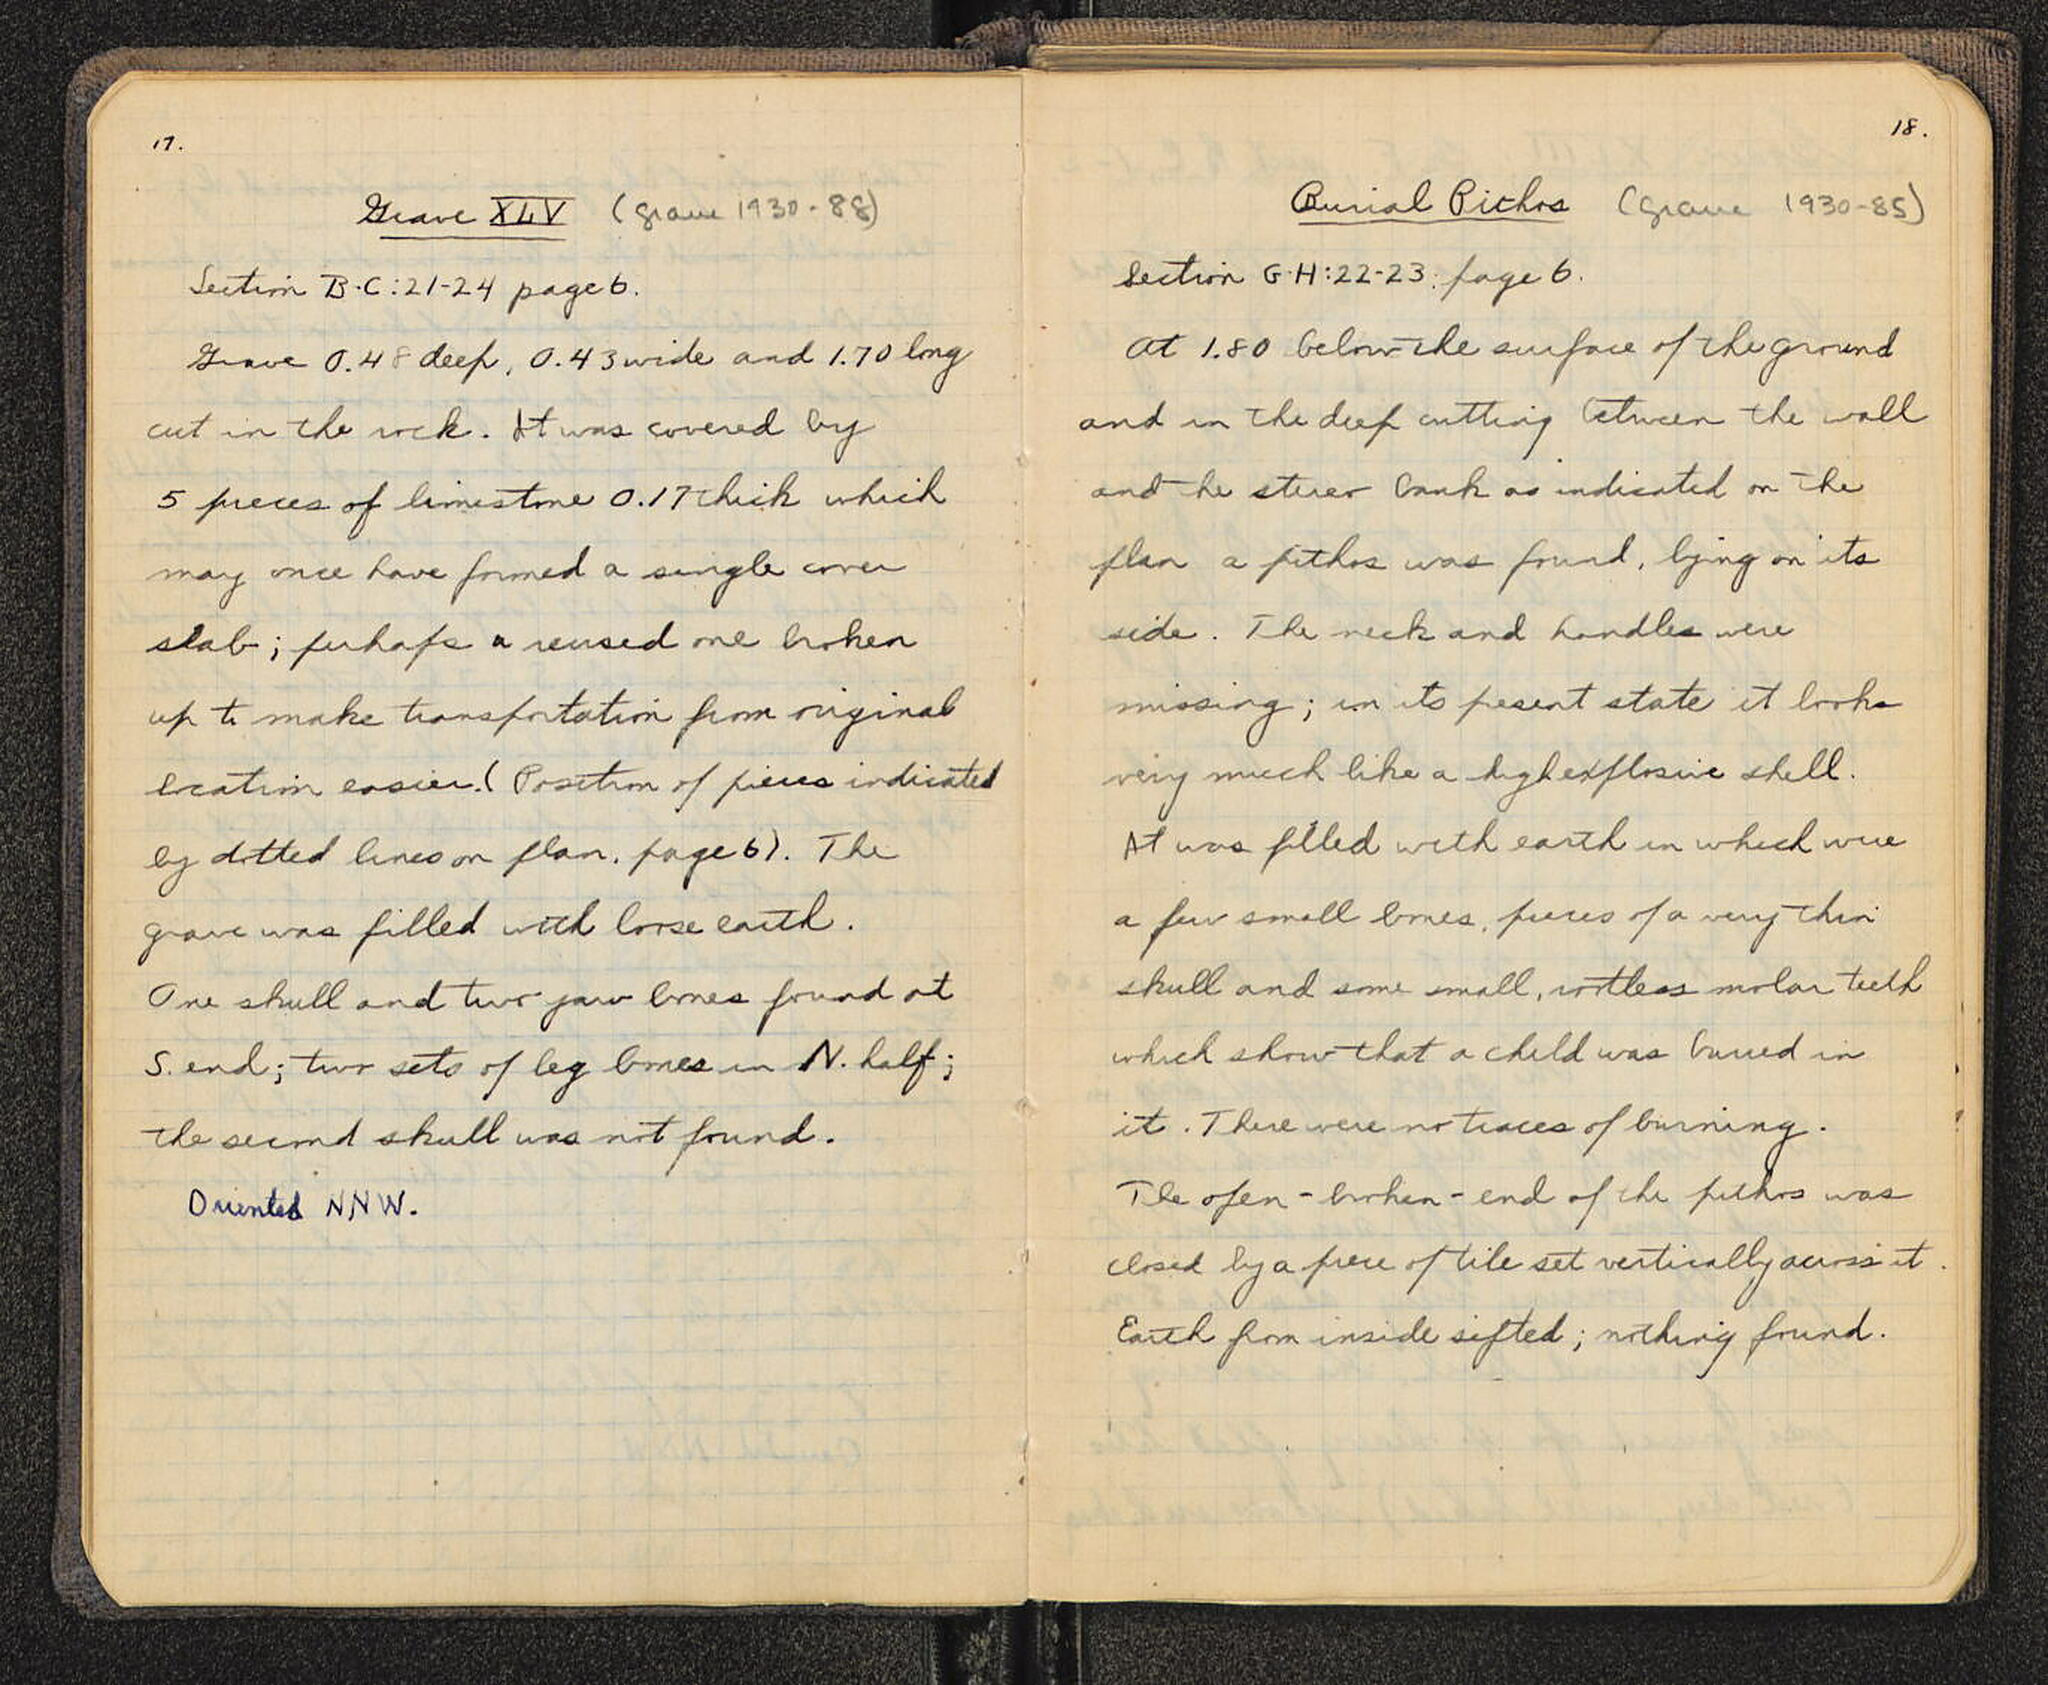 17.
Grave XLV (grave 1930-88)
Section B-C:21-24 page 6.
Grave 0.48 deep, 0.43 wide and 1.70 long
cut in the rock. It was covered by
5 pieces of limestone 0.17 thick which
may once have formed a single cover
slab; perhaps a reused one broken
up to make transportation from original
location easier. (Position of pieces indicated
by dotted lines on plan, page 6). The
grave was filled with loose earth.
One skull and two jaw bones found at
S. end; two sets of leg bones in N. half;
the second skull was not found.
Oriented N.N.W.
18.
Burial Pithos (grave 1930-85)
Section G-H:22-23. page 6.
At 1.80 below the surface of the ground
and in the deep cutting between the wall
and the bank as indicated on the
plan a pithos was found, lying on its
side. The neck and handles were
missing; in its present state it looks
very much like a high explosive shell.
It was filled with earth in which were
a few small bones, pieces of a very thin
skull and some small, rootless molar teeth
which show that a child was buried in
it. There were no traces of burning.
The open-broken-end of the pithos was
closed by a piece of tile set vertically across it.
Earth from inside sifted; nothing found.